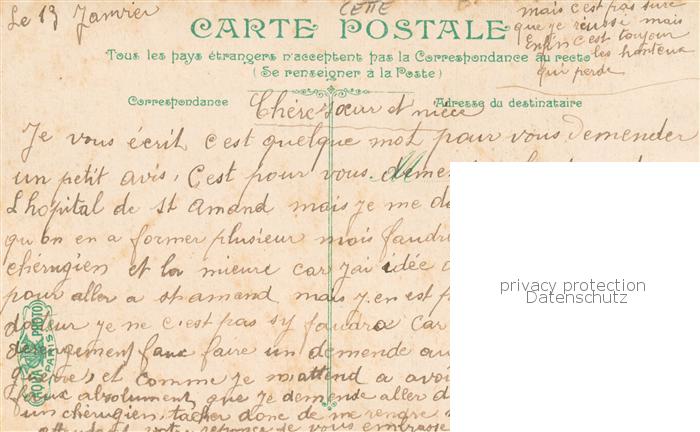 Le 13 Janvier
CETTE
mais c'est pas sure
que je réussi mais
Enfin c'est toujour
les honteux
qui perde
CARTE POSTALE
Tous les pays étrangers n'acceptent pas la Correspondance au recto
(Se renseigner à la Poste)
Correspondance
Adresse du destinataire
Chére sœur et niéce
Je vous écrit c'est quelque mot pour vous demender
un petit avis, C'est pour vous
L'hopital de St Amand mais je me
qu'on en a former plusieur mois faudr
chérugien et la mieure car j'ai idée
pour aller a St amand mais j'en est
je ne c'est pas s'y faudra Car
faux faire un demende au
et comme je m'attend a avoi
faux absolument que je demende aller d
un chérugien, tacher donc de me rendre
votre réponse je vous embrasse
NOVA PHOTO
PARIS
privacy protection
Datenschutz